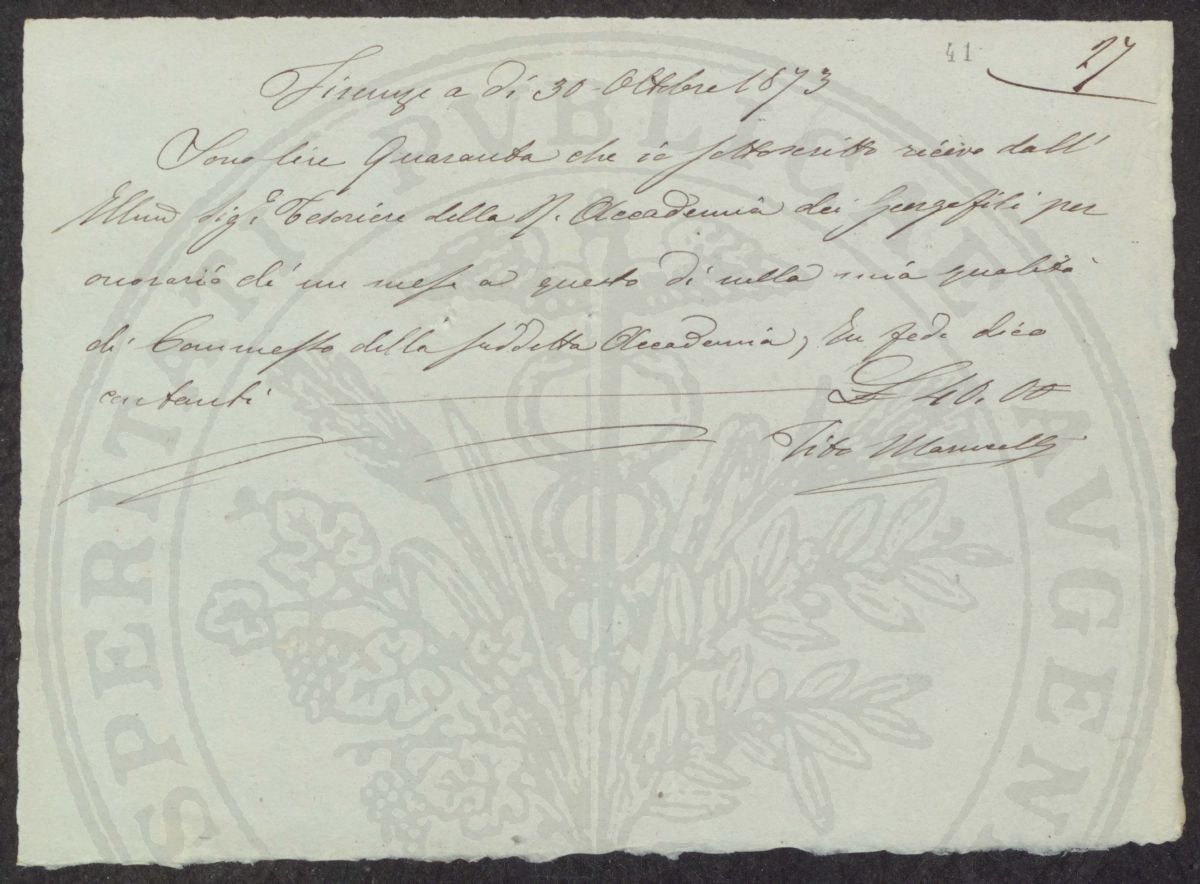 41
27
Firenze a dì 30 Ottobre 1873
Sono lire Quaranta che io sottoscritto ricevo dall'
Illmo Sigr Tesoriere della R. Accademia dei Georgofili per
onorario di un mese a questo dì nella mia qualità
di Commesso della suddetta Accademia, In fede dico
contanti £ 40.00
Tito Maruselli
PROSPERITATI PUBLICAE AUGENDAE